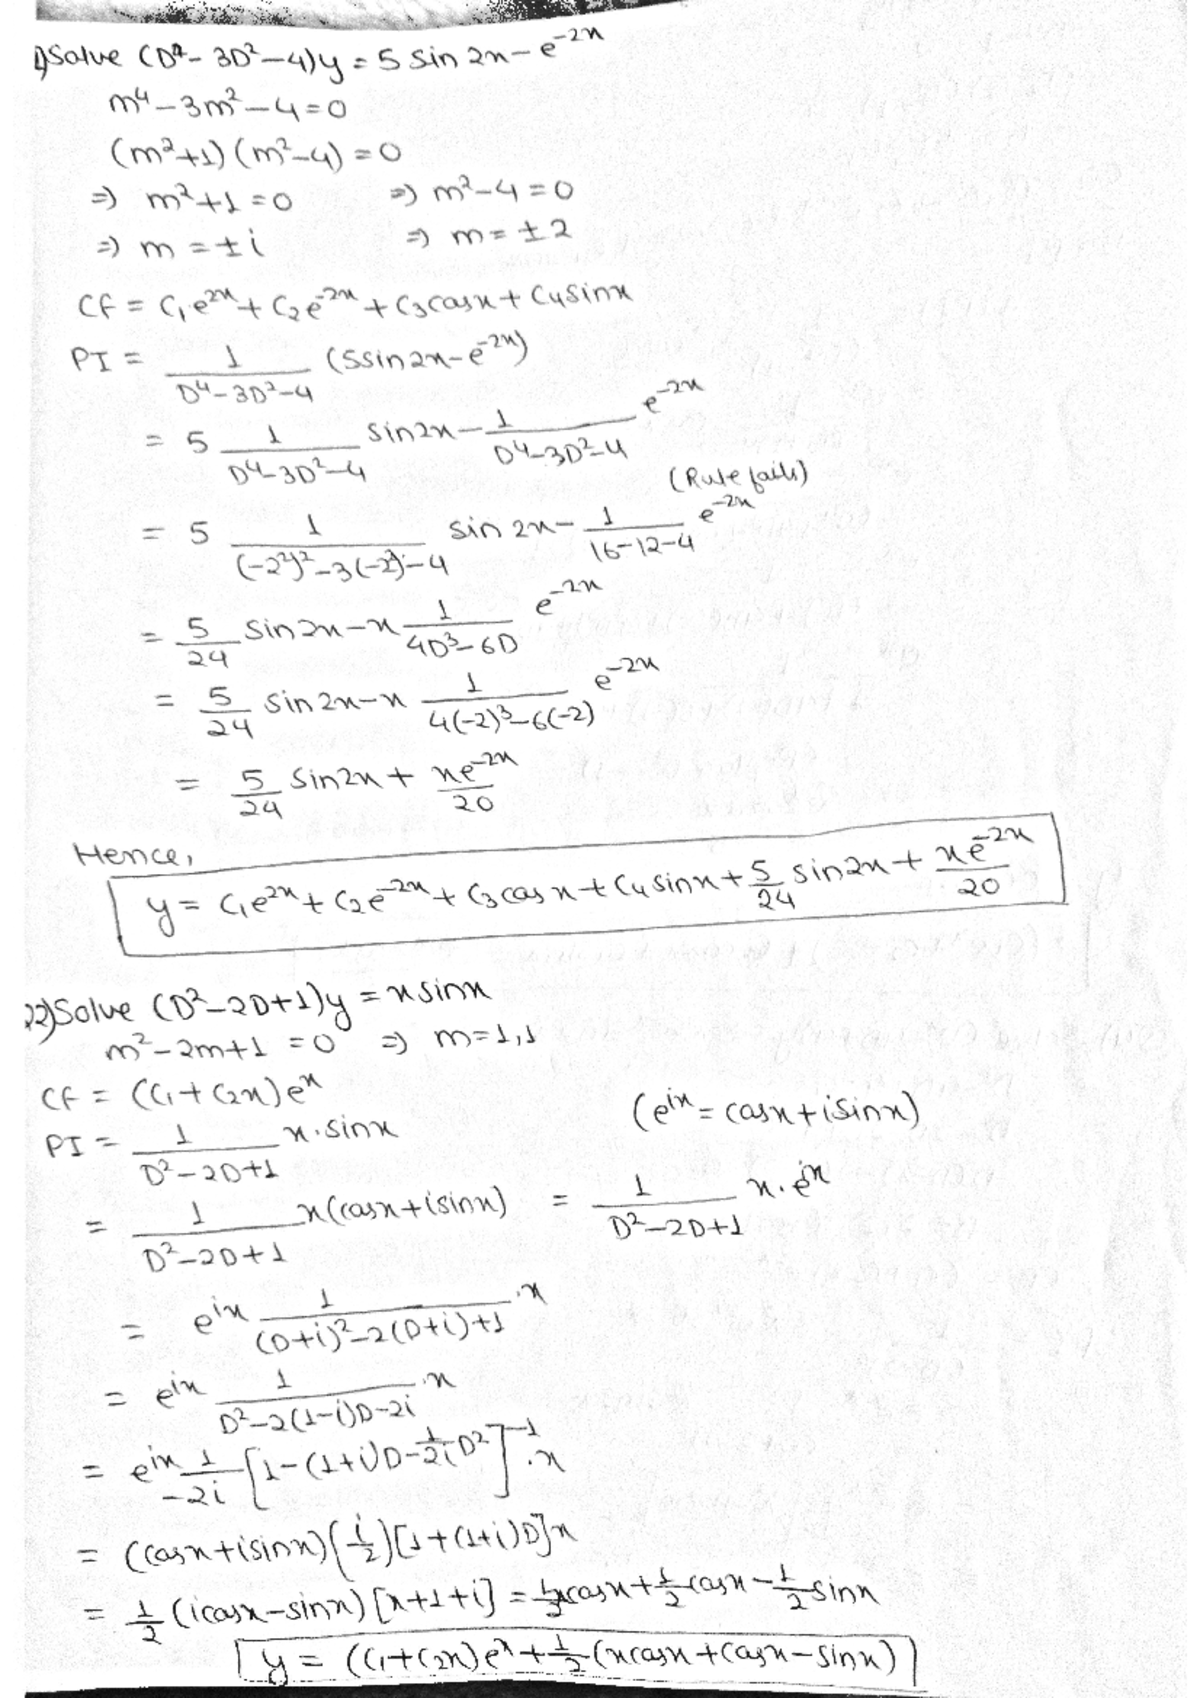 1) Solve (D⁴ - 3D² - 4)y = 5 sin 2x - e^(-2x)
m⁴ - 3m² - 4 = 0
(m² + 1) (m² - 4) = 0
⇒ m² + 1 = 0 ⇒ m² - 4 = 0
⇒ m = ± i ⇒ m = ± 2
CF = C₁e^(2x) + C₂e^(-2x) + C₃cosx + C₄sinx
PI = 1/(D⁴ - 3D² - 4) (5sin2x - e^(-2x))
= 5 1/(D⁴ - 3D² - 4) sin2x - 1/(D⁴ - 3D² - 4) e^(-2x)
(Rule fails)
= 5 1/((-2²)² - 3(-2²) - 4) sin 2x - 1/(16-12-4) e^(-2x)
= 5/24 sin2x - x 1/(4D³ - 6D) e^(-2x)
= 5/24 sin2x - x 1/(4(-2)³ - 6(-2)) e^(-2x)
= 5/24 sin2x + xe^(-2x)/20
Hence,
y = C₁e^(2x) + C₂e^(-2x) + C₃cosx + C₄sinx + 5/24 sin2x + xe^(-2x)/20
22) Solve (D² - 2D + 1)y = x sinx
m² - 2m + 1 = 0 ⇒ m = 1, 1
CF = (C₁ + C₂x)e^x
(e^(ix) = cosx + isinx)
PI = 1/(D² - 2D + 1) x·sinx
= 1/(D² - 2D + 1) x(cosx + isinx) = 1/(D² - 2D + 1) x·e^(ix)
= e^(ix) 1/((D+i)² - 2(D+i) + 1) ·x
= e^(ix) 1/(D² - 2(1-i)D - 2i) ·x
= e^(ix) 1/(-2i) [1 - (1+i)D - 1/(2i) D²]^(-1) ·x
= (cosx + isinx) (i/2) [1 + (1+i)D]x
= 1/2 (icosx - sinx) [x + 1 + i] = 1/2 xcosx + 1/2 cosx - 1/2 sinx
y = (C₁ + C₂x)e^x + 1/2 (xcosx + cosx - sinx)